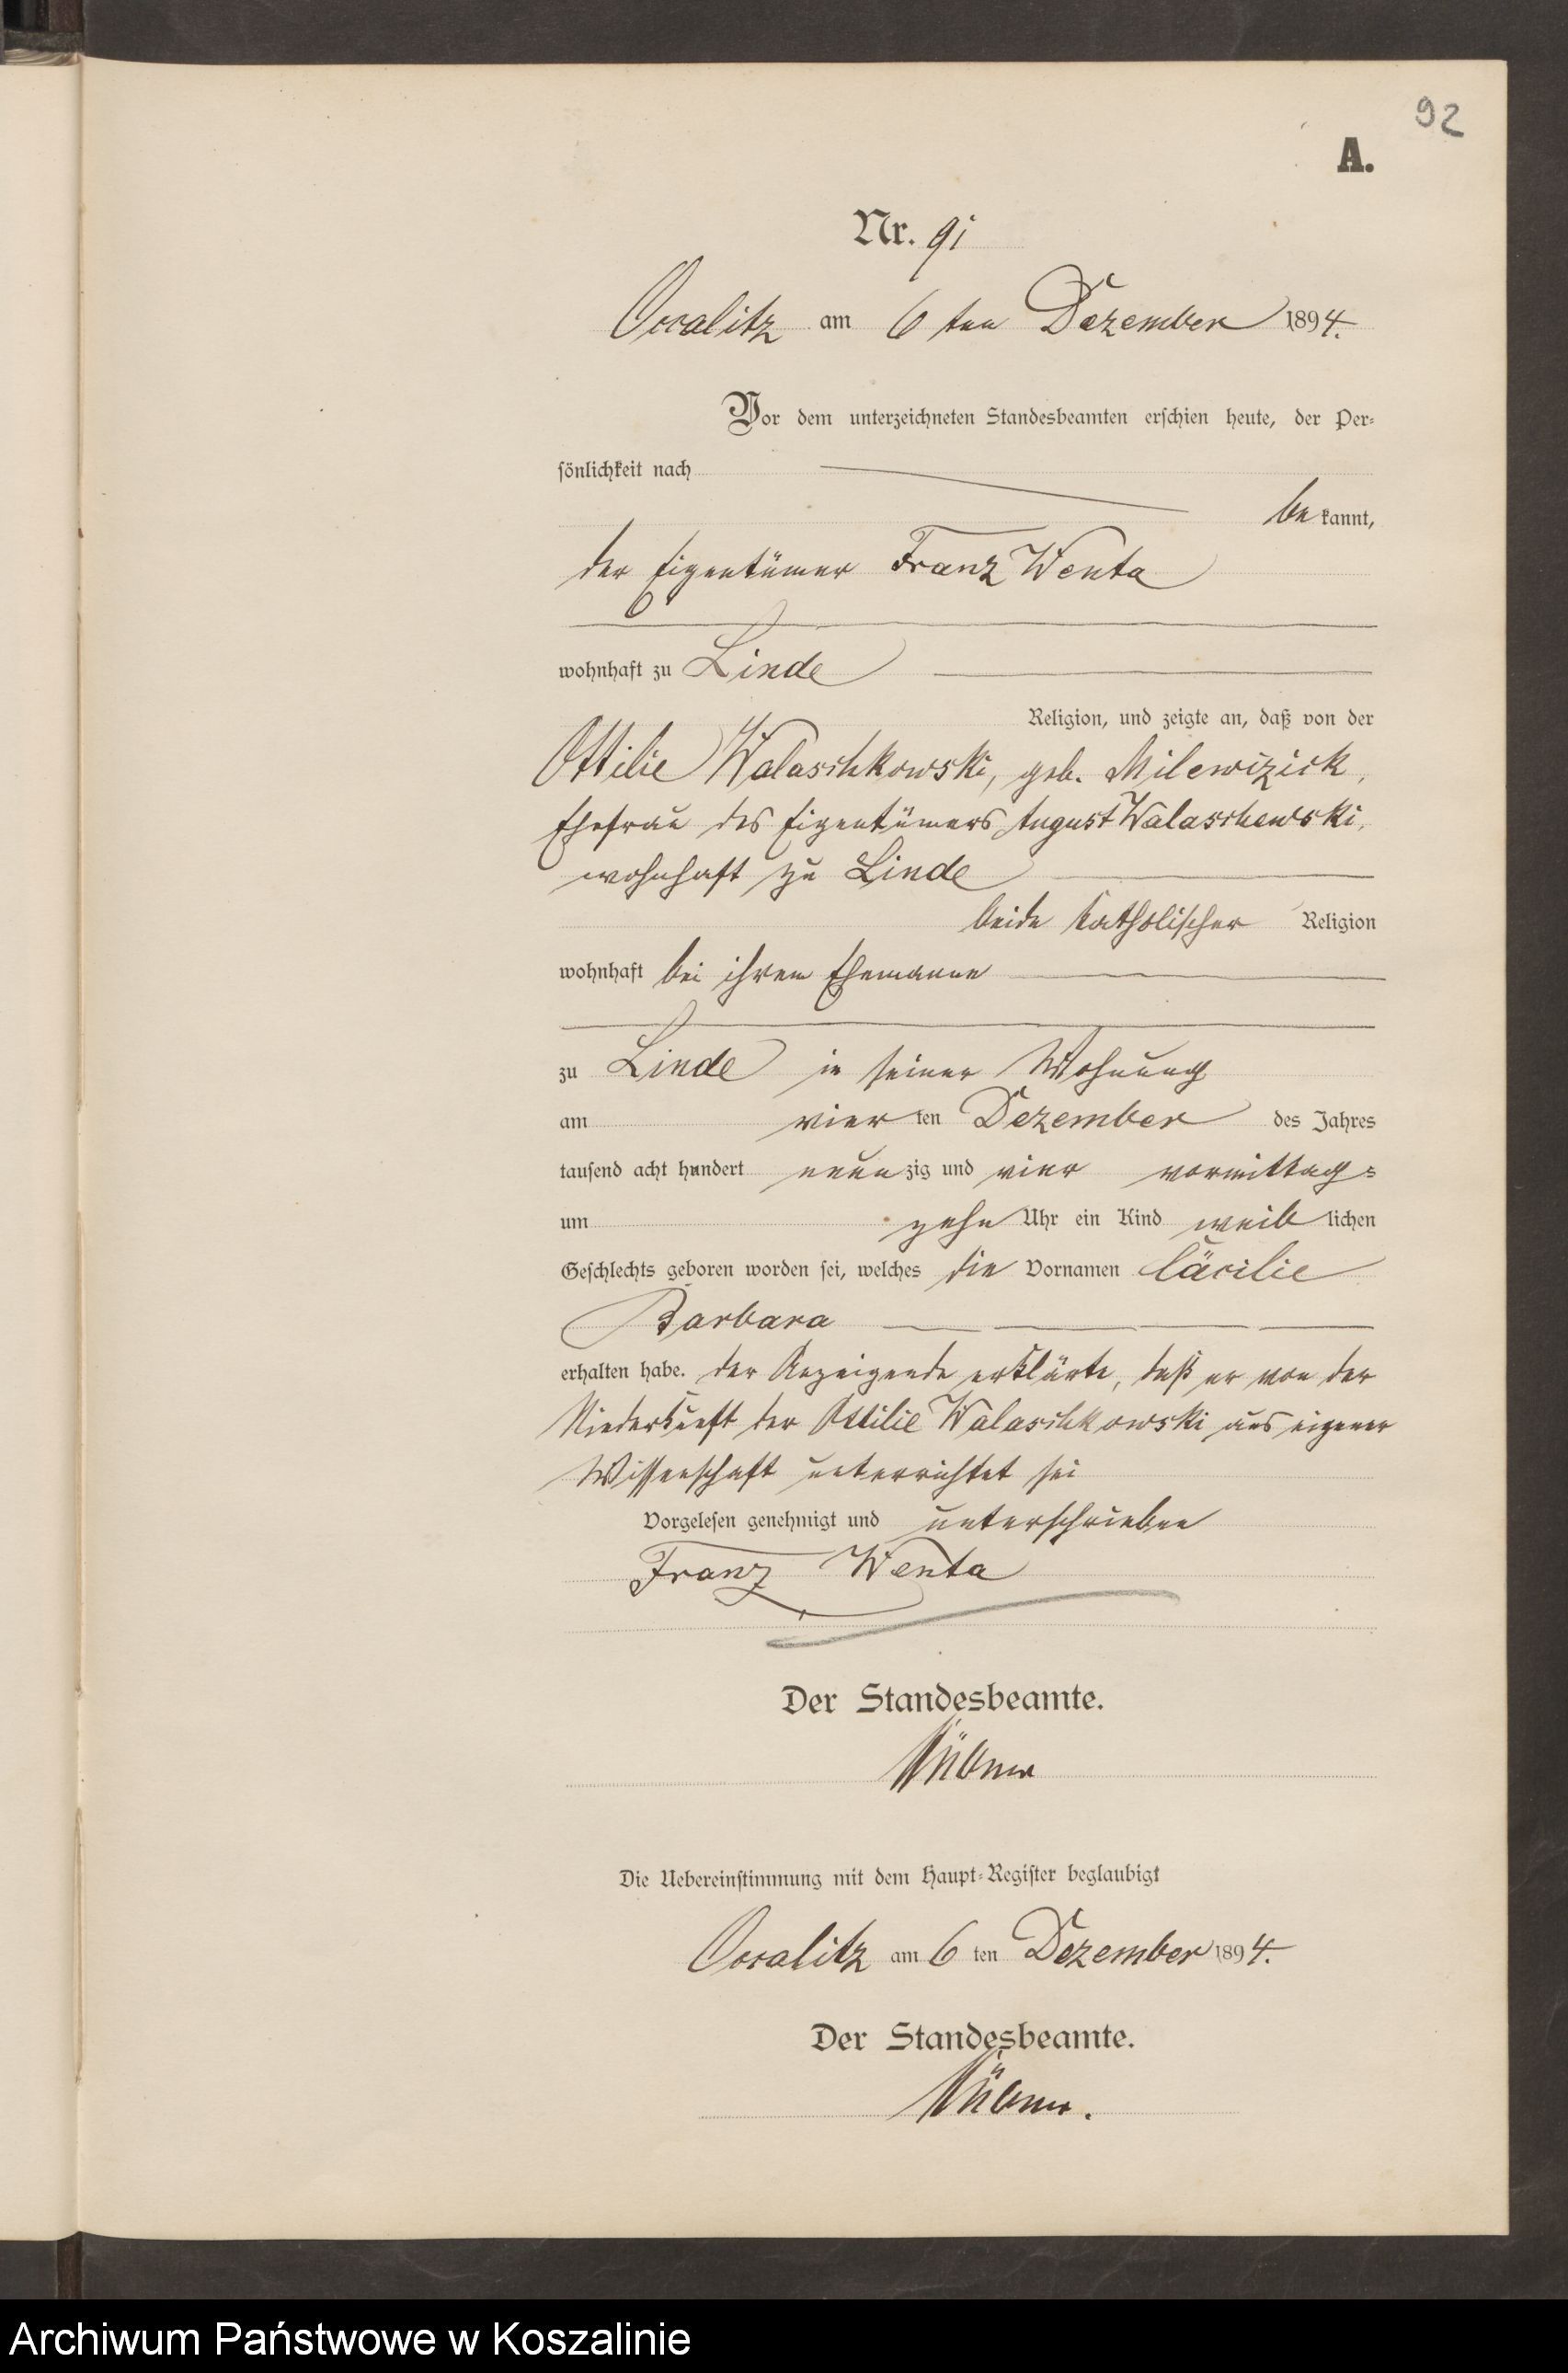 92
A.
Nr. 91
Occalitz am 6ten Dezember 1894.
Vor dem unterzeichneten Standesbeamten erschien heute, der Per-
sönlichkeit nach
bekannt,
der Eigentümer Franz Wenta
wohnhaft zu Linde
Religion, und zeigte an, daß von der
Ottilie Walaschkowski, geb. Milewizick,
Ehefrau des Eigentümers August Walaschewski,
wohnhaft zu Linde
beide katholischer Religion
wohnhaft bei ihrem Ehemanne
zu Linde in seiner Wohnung
am vierten Dezember des Jahres
tausend acht hundert neunzig und vier vormittag-
um zehn Uhr ein Kind weiblichen
Geschlechts geboren worden sei, welches die Vornamen Cäcilie
Barbara
erhalten habe. der Anzeigende erklärte, daß er von der
Niederkunft der Ottilie Walaschkowski aus eigener
Wissenschaft unterrichtet sei
Vorgelesen genehmigt und unterschrieben
Franz Wenta
Der Standesbeamte.
Die Uebereinstimmung mit dem Haupt-Register beglaubigt
Occalitz am 6ten Dezember 1894.
Der Standesbeamte.
Archiwum Państwowe w Koszalinie